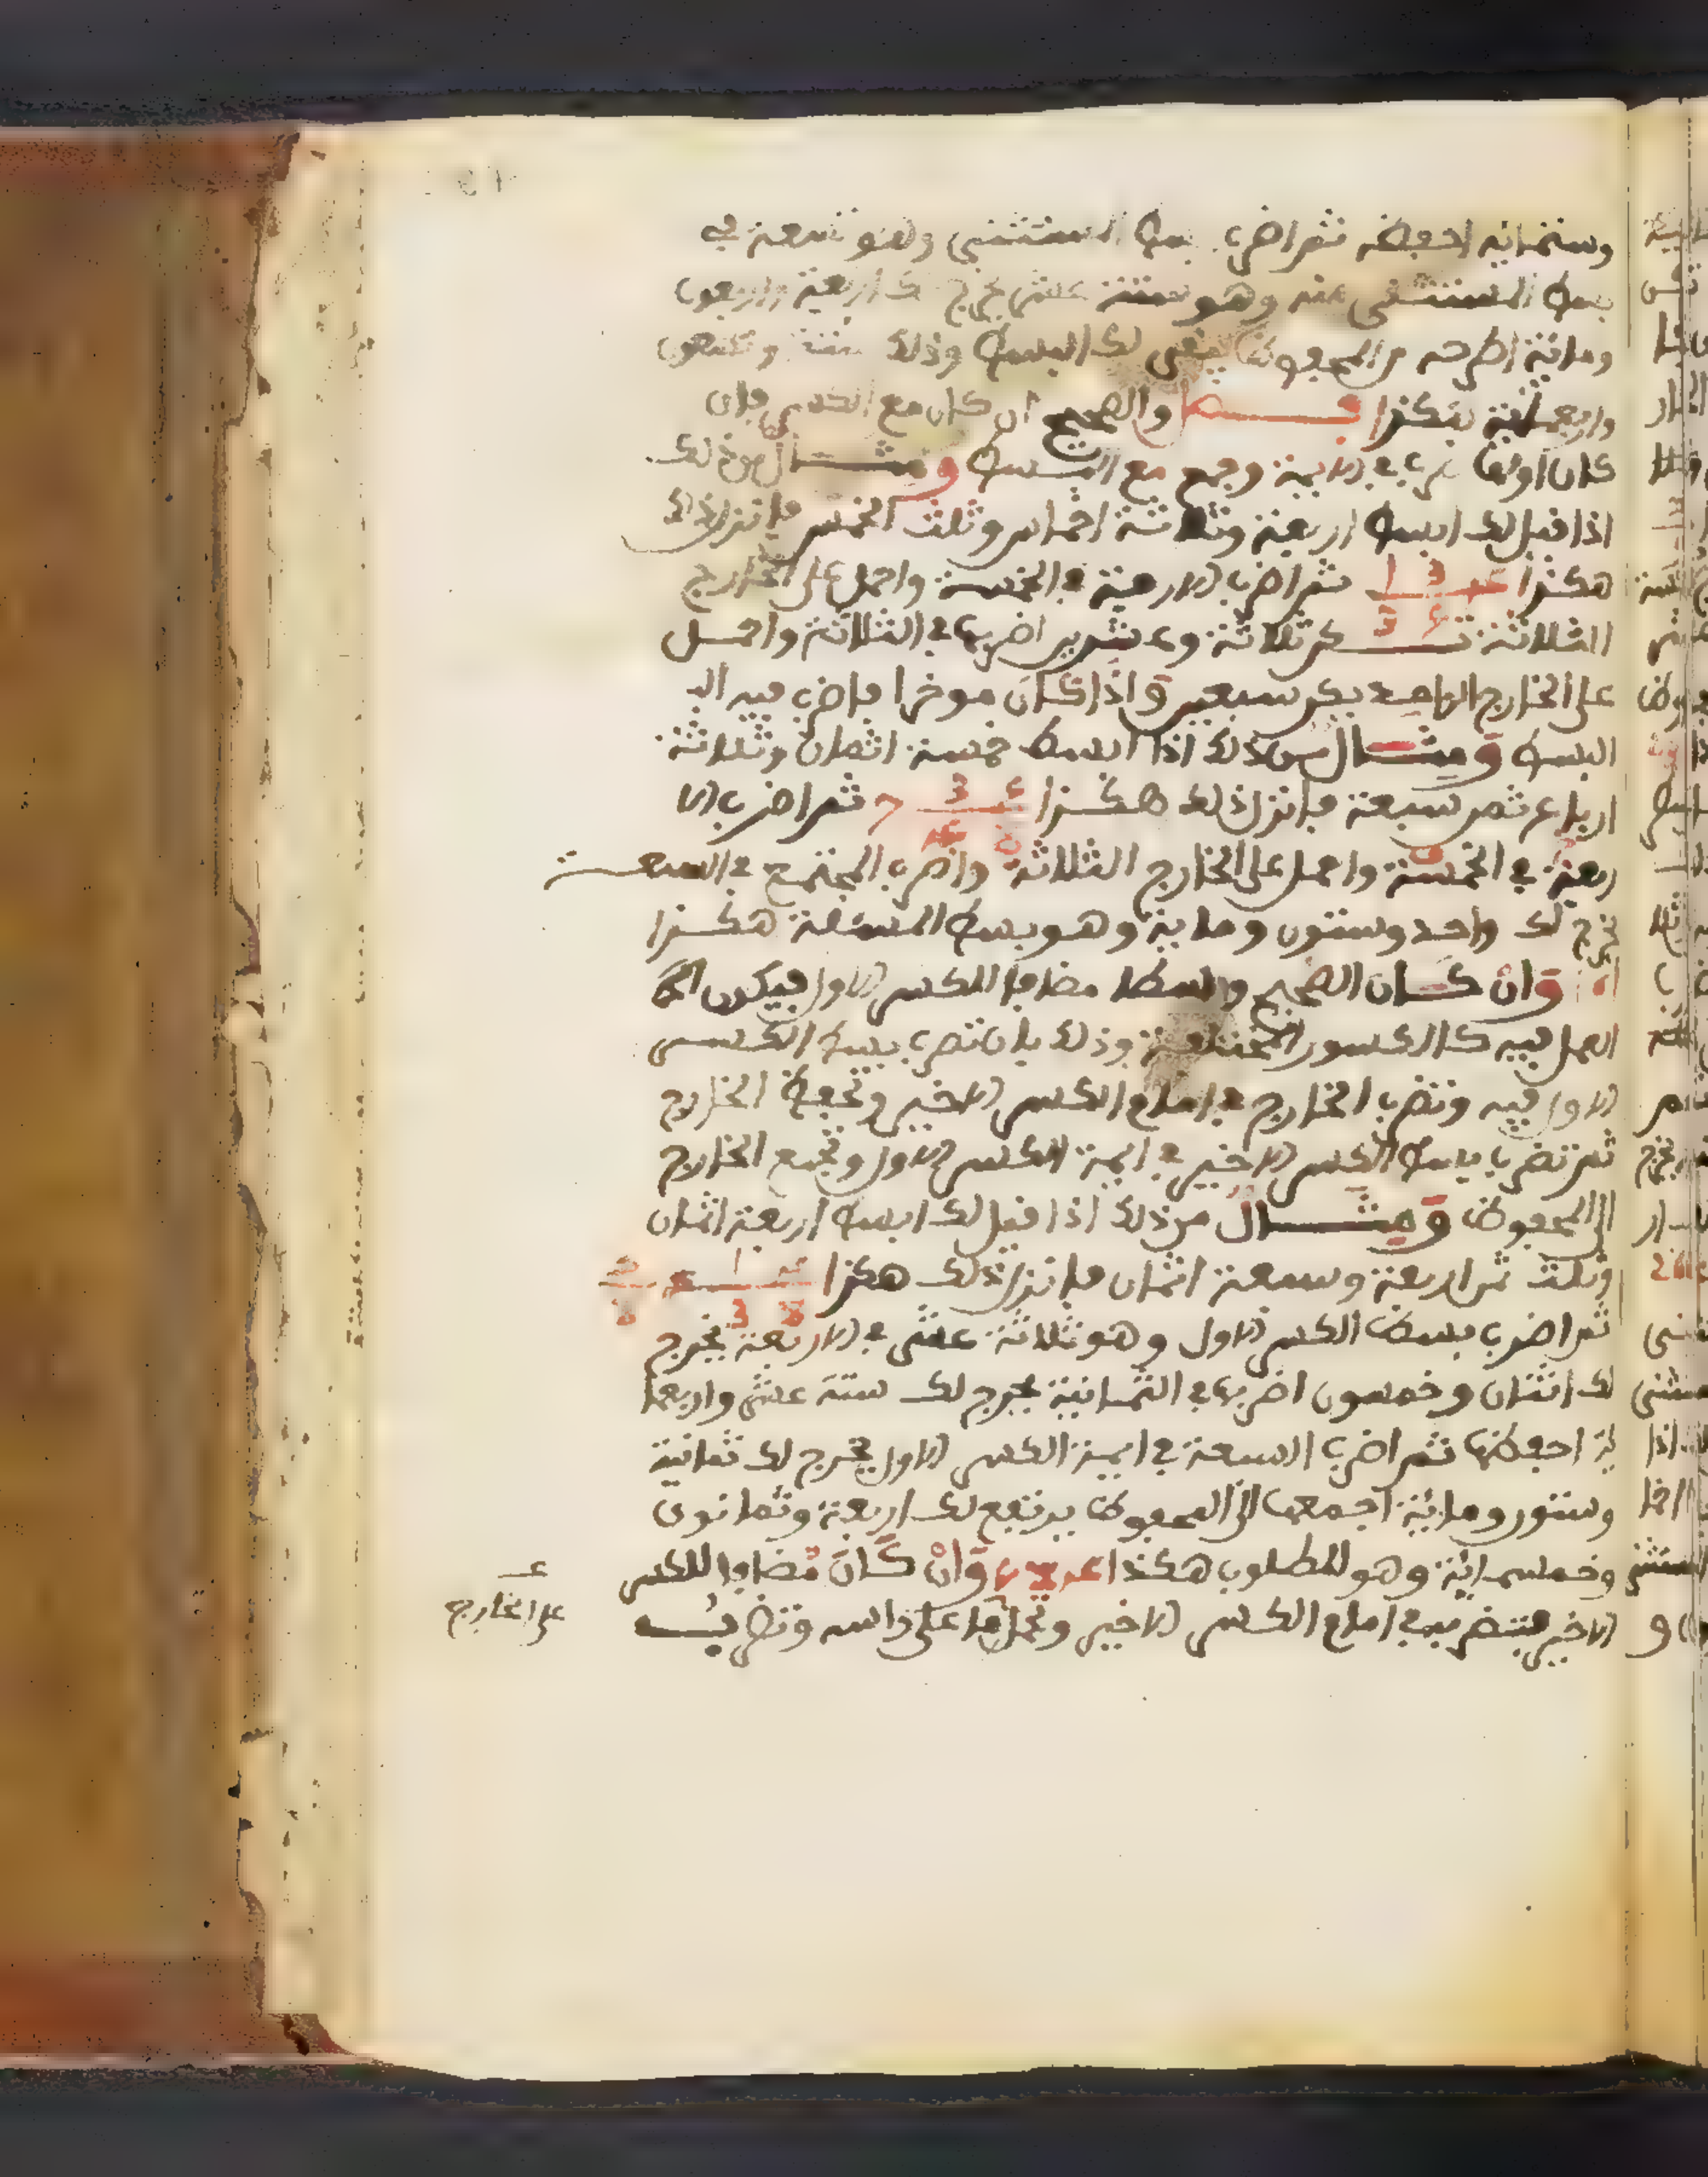 وستمائة احفظه ثم اضرب بسط المستثنى وهو تسعة في
بسط المستثنى منه وهو ستة عشر يخرج لك اربعة واربعون
ومائة اطرحه من المحفوظ يبقى لك البسط وذلك ستة وتسعون
واربعمائة هكذا والصحيح ان كان مع الكسر فان
كان اولا ضرب في الايمة وجمع مع البسط ومثال من ذلك
اذا قيل لك ابسط اربعة وثلاثة اخماس وثلث الخمس فانزل ذلك
هكذا ثم اضرب الاربعة في الخمسة واحمل على الخارج
الثلاثة تكن ثلاثة وعشرين اضربها في الثلاثة واحمل
على الخارج الواحد يكن سبعين واذا كان موخرا فاضرب فيه الـ
البسط ومثال من ذلك اذا ابسط خمسة اثمان وثلاثة
ارباع ثمن سبعة فانزل ذلك هكذا ثم اضرب الا
ربعة في الخمسة واحمل على الخارج الثلاثة واضرب المجتمع في السبعة
يخرج لك واحد وستون ومائة وهو بسط المسئلة هكذا
وان كان الصحيح واسطا مضافا للكسر الاول فيكون
العمل فيه كالكسور المختلفة وذلك بان تضرب بسط الكسر
الاول فيه وتضرب الخارج في امام الكسر الاخير وتحفظ الخارج
ثم تضرب بسط الكسر الاخير في ايمة الكسر الاول وتجمع الخارج
الى المحفوظ ومثال من ذلك اذا قيل لك ابسط اربعة اثمان
وثلث ثمن اربعة وسبعة اثمان فانزل ذلك هكذا
ثم اضرب بسط الكسر الاول وهو ثلاثة عشر في الاربعة يخرج
لك اثنان وخمسون اضربها في الثمانية يخرج لك ستة عشر واربعما
ئة احفظها ثم اضرب السبعة في ايمة الكسر الاول يخرج لك ثمانية
وستون ومائة اجمعها الى المحفوظ يرتفع لك اربعة وثمانون
وخمسمائة وهو المطلوب هكذا وان كان مضافا للكسر
الاخير فتضربه في امام الكسر الاخير وتحمل ما على راسه وتضرب
على الخارج